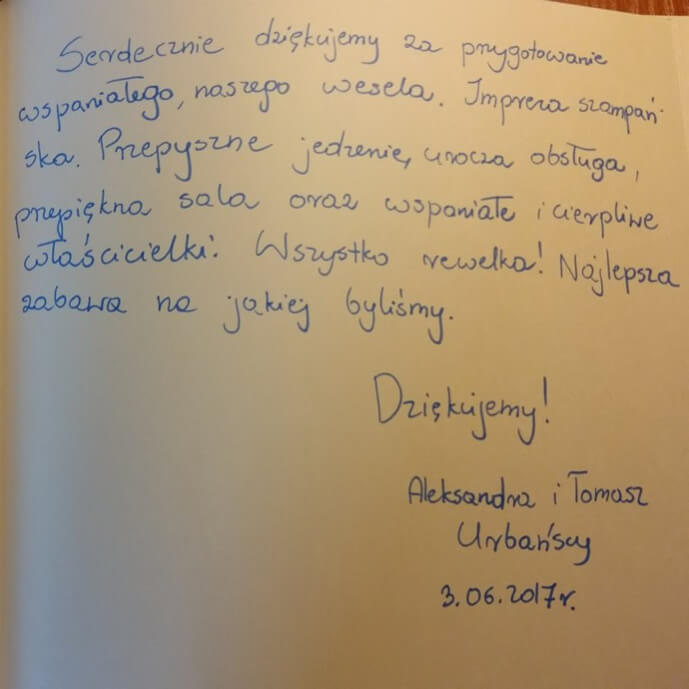 Serdecznie dziękujemy za przygotowanie
wspaniałego, naszego wesela. Impreza szampań-
ska. Przepyszne jedzenie, urocza obsługa,
przepiękna sala oraz wspaniałe i cierpliwe
właścicielki. Wszystko rewelka! Najlepsza
zabawa na jakiej byliśmy.
Dziękujemy!
Aleksandra i Tomasz
Urbańscy
3.06.2017r.